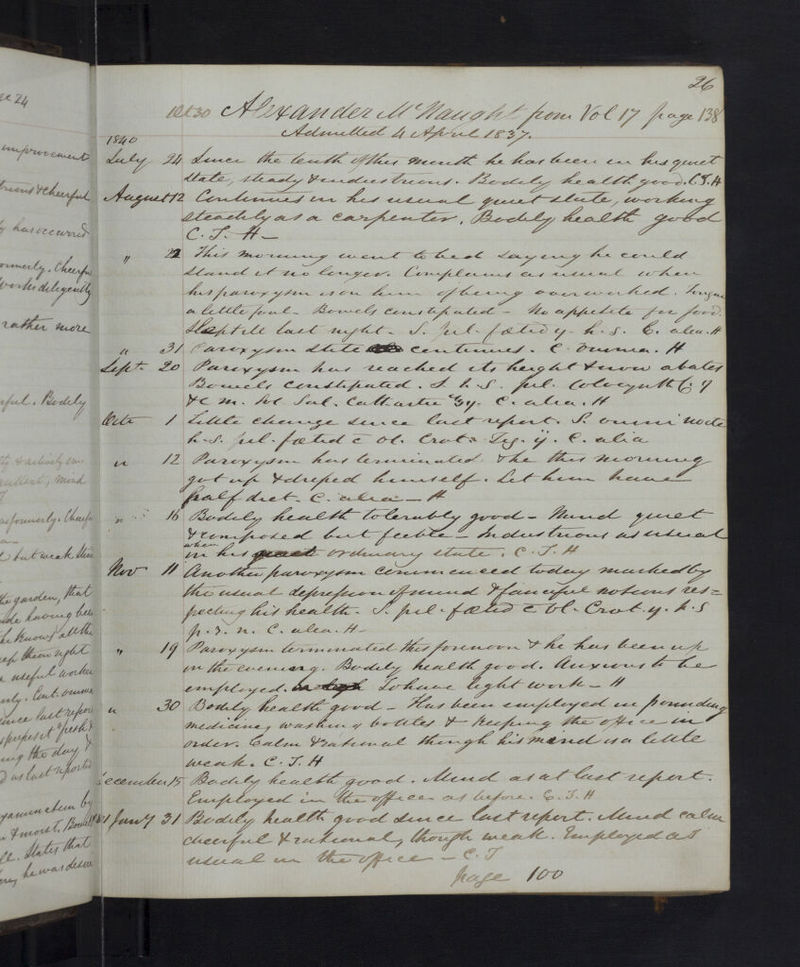 26
Alexander McNaught from Vol 17 page 138
Admitted 4 April 1837.
1840
July 24 Since the tenth of this month he has been in his quiet
state, steady & industrious. Bodily health good. C.T.H
August 12 Continues in his usual quiet state, working
steadily as a carpenter. Bodily health good
C. T. H
" 22 This morning went to bed saying he could
stand it no longer. Complains as usual when
his paroxysm is on him of being overworked. Tongue
a little foul - Bowels constipated - No appetite for food.
Slept ill last night - S. pil. fœtid ij. h. s. C. alia. H
" 31 Paroxysm state continues. C. omnia. H
Sept. 20 Paroxysm has reached its height & now abates
Bowels constipated. S. h. S. pil. Colocynth C. ij
& c. m. Sol. Sal. Cathartic C. alia. H
Octr 1 Little change since last report. S. omni nocte
h. s. pil. fœtid c ol. Crot. ij. C. alia
" 12 Paroxysm has terminated & he this morning
got up & dressed himself. Let him have
half diet. C. alia - H
" 16 Bodily health tolerably good - Mind quiet
& composed but feeble - Industrious as usual
when
in his quiet ordinary state. C. T. H
Nov 11 Another paroxysm commenced today marked by
the usual depression of mind & fanciful notions res=
pecting his health. S. pil. fœtid c Ol. Crot. ij. h. S
p. r. n. C. alia. H -
" 19 Paroxysm terminated this forenoon & he has been up
in the evening. Bodily health good. Anxious to be
employed. To have light work - H
" 30 Bodily health good - Has been employed in pounding
medicine, washing bottles & keeping the office in
order. Calm & rational though his mind is a little
weak. C. T. H
December 15 Bodily health good. Mind as at last report.
Employed in the office as before. C. T. H
Jany 31 Bodily health good since last report. Mind calm
cheerful & rational, though weak. Employed as
usual in the office - C. T
page 100